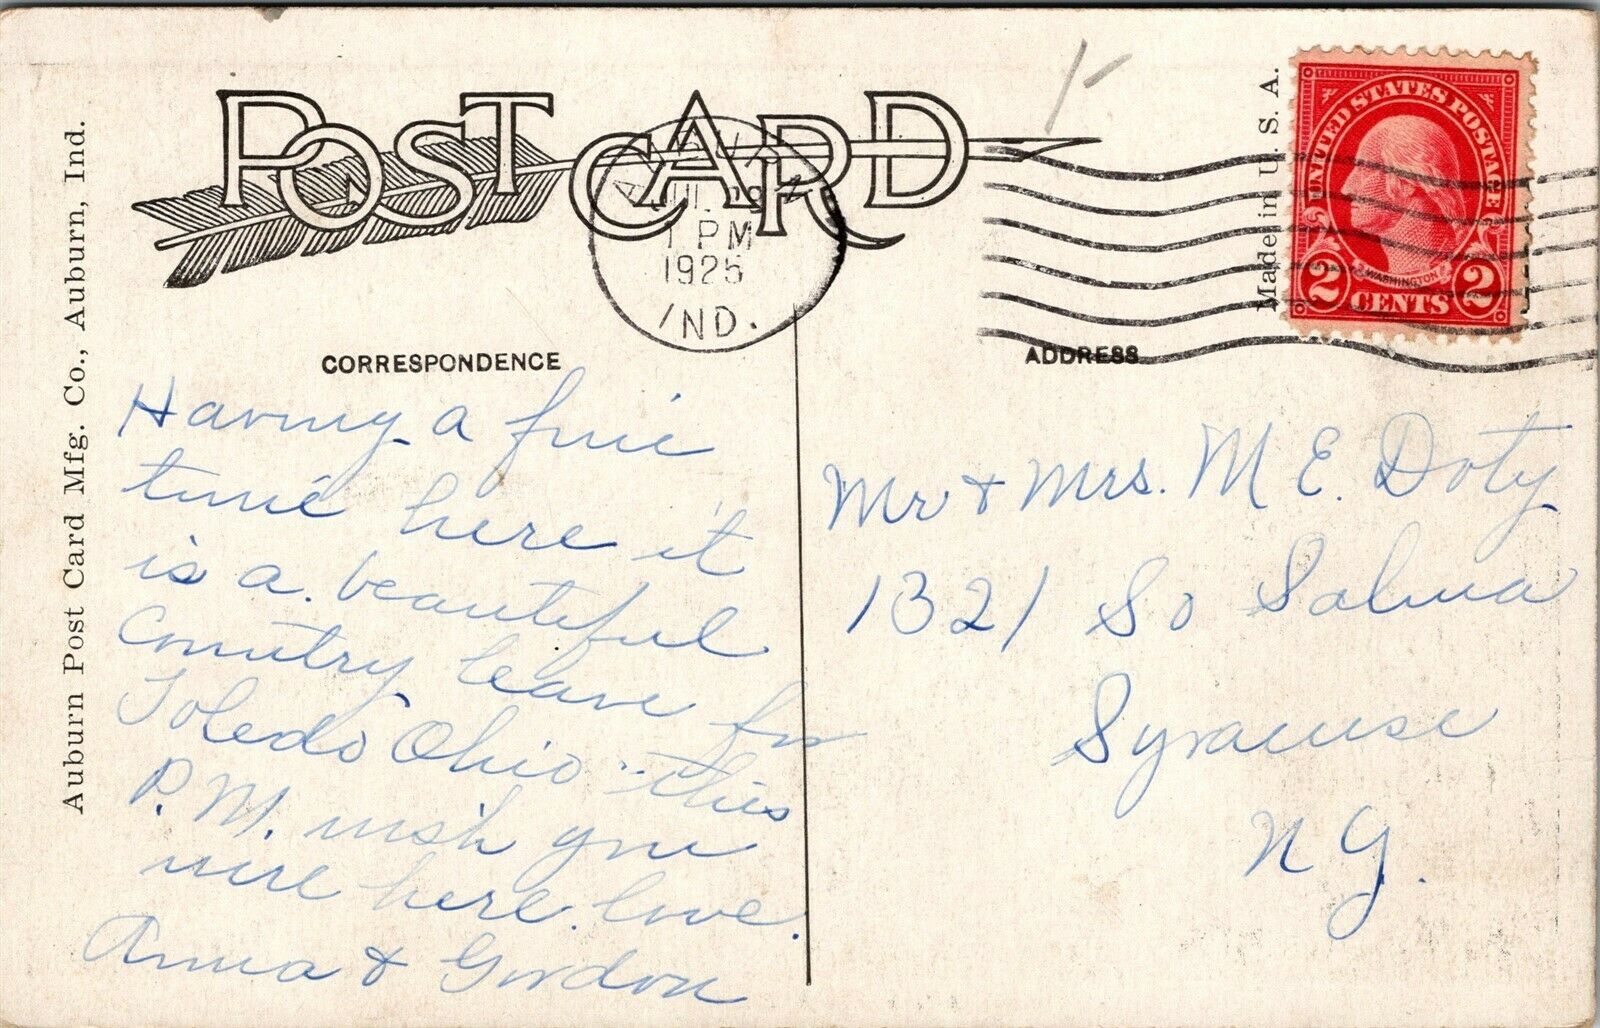 POST CARD
Auburn Post Card Mfg. Co., Auburn, Ind.
1 PM
1925
IND.
Made in U. S. A.
UNITED STATES POSTAGE
WASHINGTON
2 CENTS 2
CORRESPONDENCE
Having a fine
time here it
is a beautiful
country leave for
Toledo Ohio this
P.M. wish you
were here. love.
Anna & Gordon
ADDRESS
Mr & Mrs. M E. Doty
1321 So Salina
Syracuse
N Y.